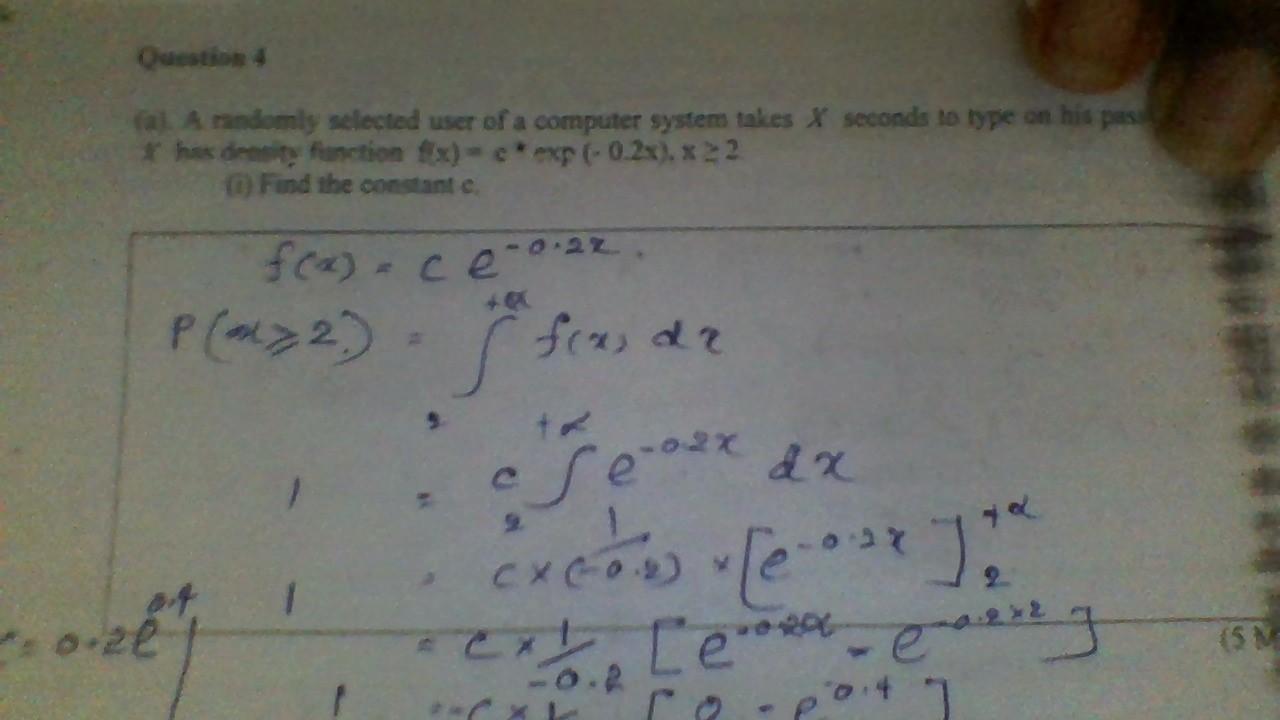 Question 4
(a). A randomly selected user of a computer system takes X seconds to type on his
X has density function f(x) = c * exp (- 0.2x), x ≥ 2
(i) Find the constant c.
f(x) = c e^{-0.2x}.
P(x ≥ 2) = ∫_2^{+α} f(x) dx
1 = c ∫_2^{+α} e^{-0.2x} dx
1 = c × 1/(-0.2) × [e^{-0.2x}]_2^{+α}
= c × 1/-0.2 [e^{-0.2α} - e^{-0.2×2}]
= 0.2e^{0.4}
(5
1 = [0 - e^{-0.4}]